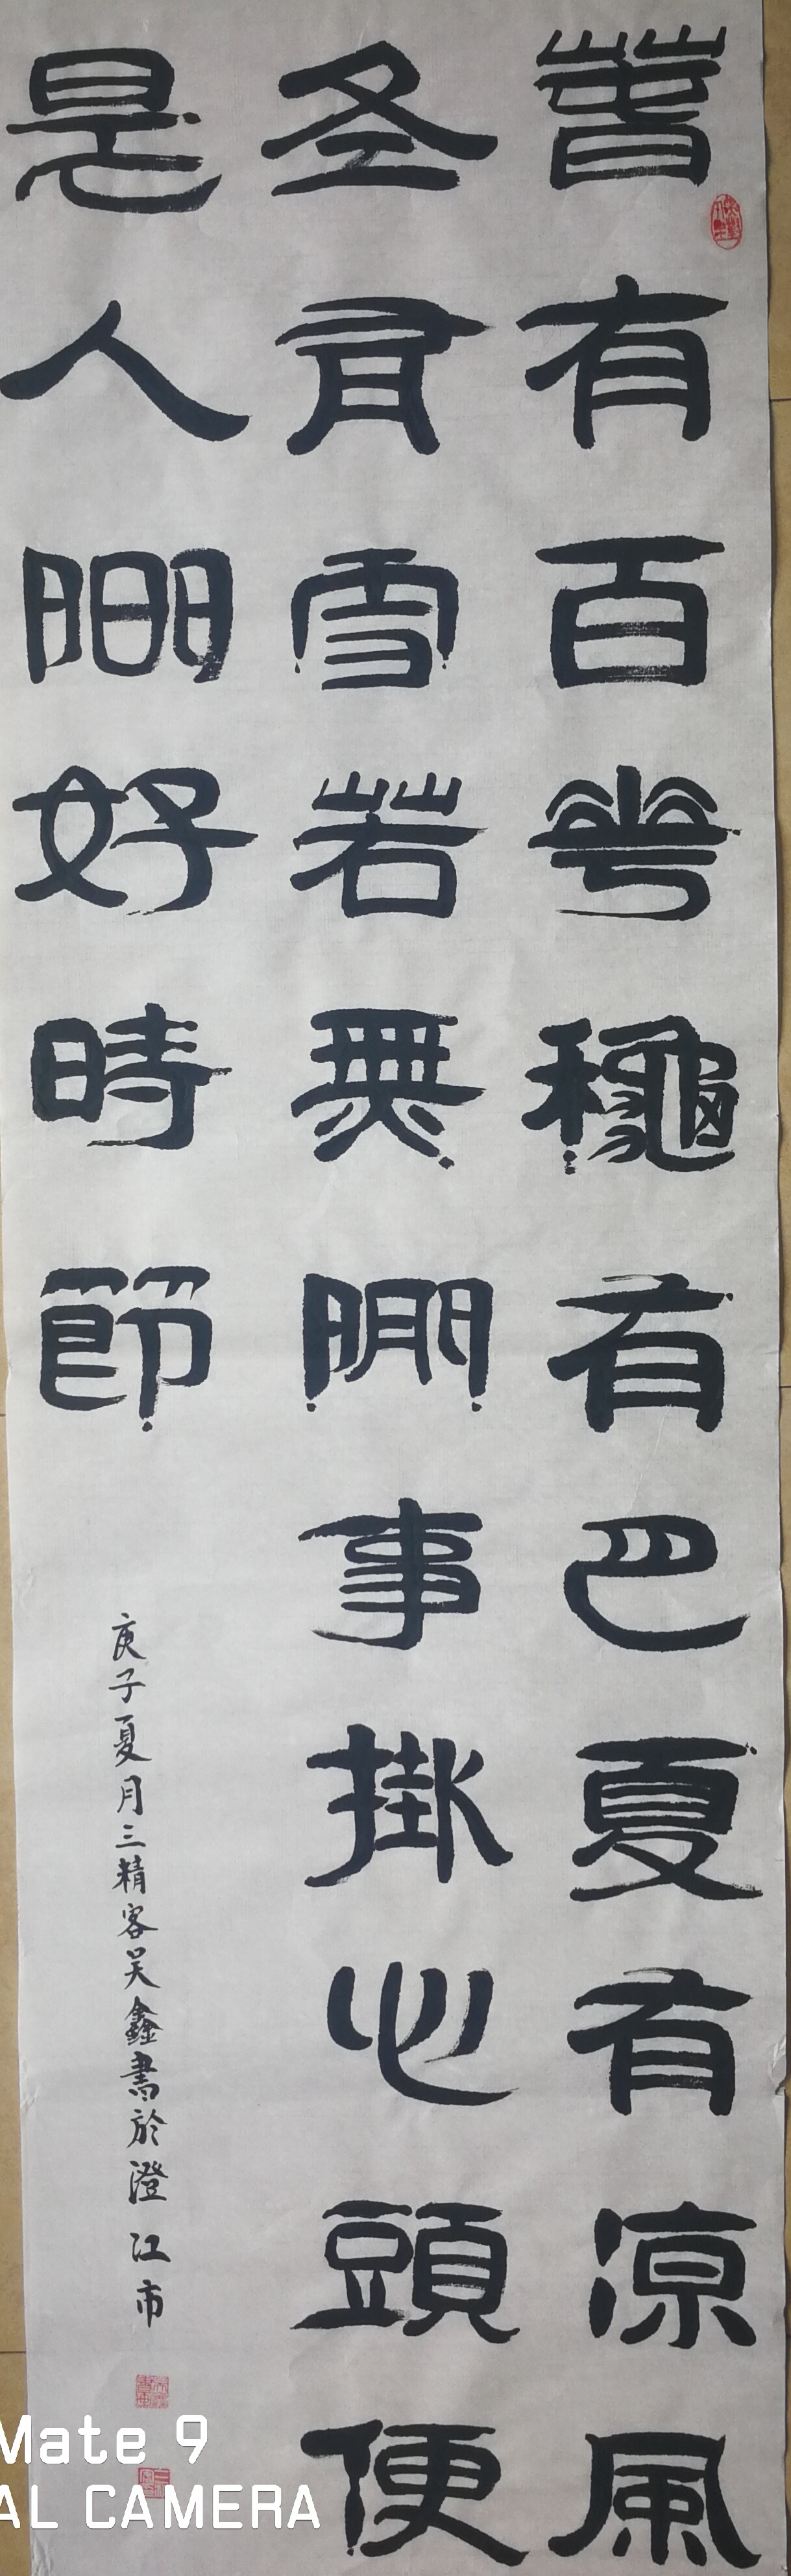 萅有百華龝有巴夏有凉風
冬有雪若無閒事掛心頭便
是人間好時節
庚子夏月三精客吴鑫書於澄江市
Mate 9
AL CAMERA